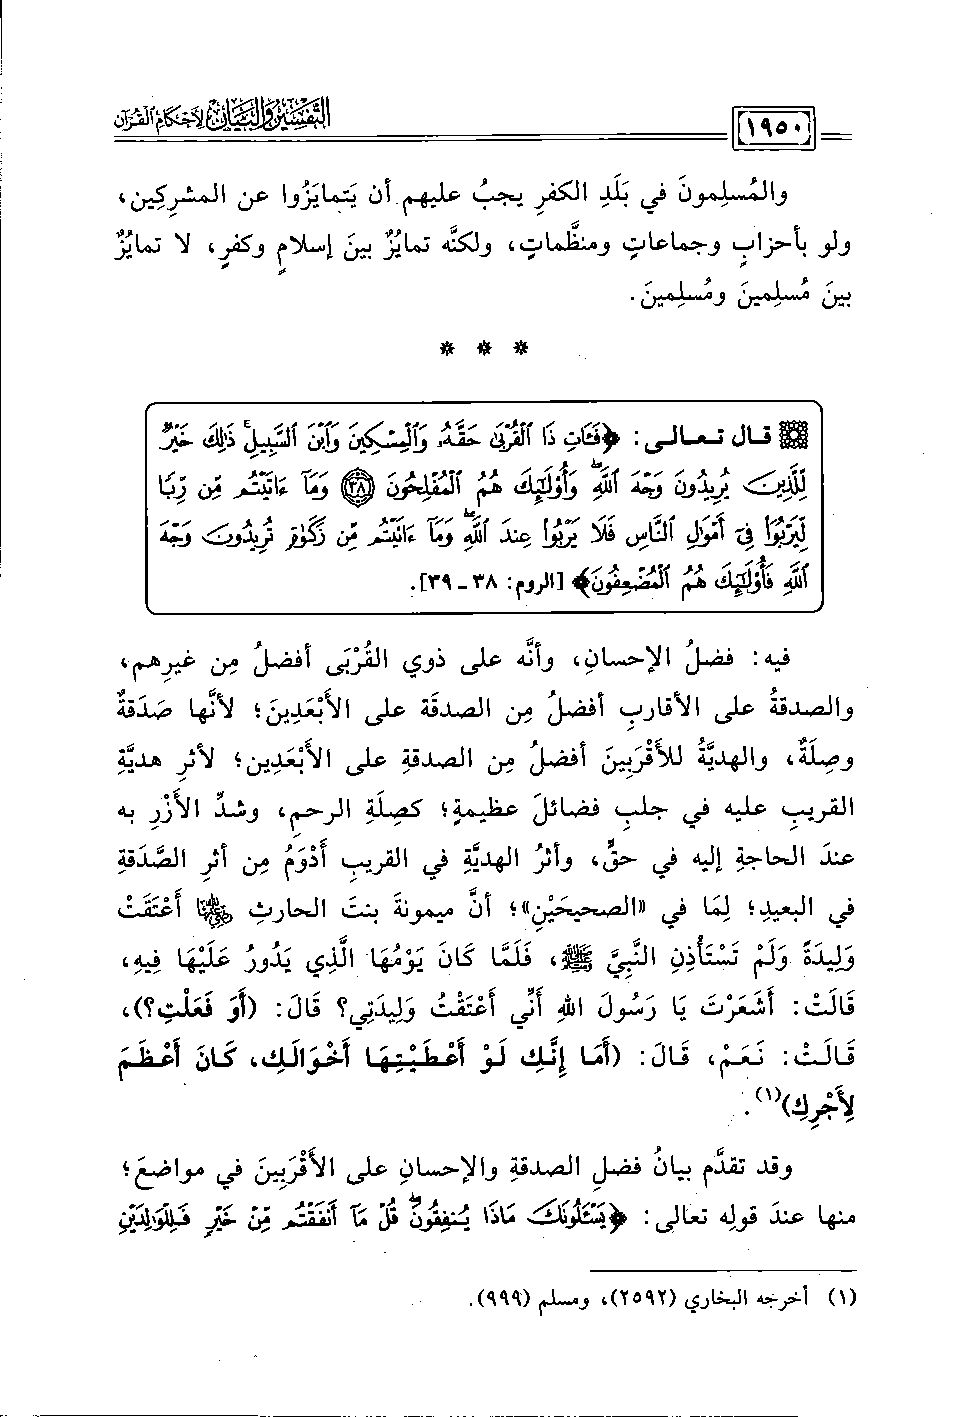 التفسير والبيان لأحكام القرآن
١٩٥٠
والمُسلِمونَ في بَلَدِ الكفرِ يجبُ عليهم أن يَتمايَزُوا عن المشرِكِين،
ولو بأحزابٍ وجماعاتٍ ومنظَّماتٍ، ولكنَّه تمايُزٌ بينَ إسلامٍ وكفرٍ، لا تمايُزٌ
بينَ مُسلِمينَ ومُسلِمينَ.
* * *
قال تعالى: ﴿فَـَٔاتِ ذَا ٱلْقُرْبَىٰ حَقَّهُۥ وَٱلْمِسْكِينَ وَٱبْنَ ٱلسَّبِيلِ ۚ ذَٰلِكَ خَيْرٌ
لِّلَّذِينَ يُرِيدُونَ وَجْهَ ٱللَّهِ ۖ وَأُو۟لَـٰٓئِكَ هُمُ ٱلْمُفْلِحُونَ ٣٨ وَمَآ ءَاتَيْتُم مِّن رِّبًا
لِّيَرْبُوَا۟ فِىٓ أَمْوَٰلِ ٱلنَّاسِ فَلَا يَرْبُوا۟ عِندَ ٱللَّهِ ۖ وَمَآ ءَاتَيْتُم مِّن زَكَوٰةٍ تُرِيدُونَ وَجْهَ
ٱللَّهِ فَأُو۟لَـٰٓئِكَ هُمُ ٱلْمُضْعِفُونَ﴾ [الروم: ٣٨ ـ ٣٩].
فيه: فضلُ الإحسانِ، وأنَّه على ذوي القُرْبَى أفضلُ مِن غيرِهم،
والصدقةُ على الأقاربِ أفضلُ مِن الصدقَة على الأَبْعَدِينَ؛ لأنَّها صَدَقةٌ
وصِلَةٌ، والهديَّةُ للأقْرَبِينَ أفضلُ مِن الصدقةِ على الأبْعَدِين؛ لأثرِ هديَّةِ
القريبِ عليه في جلبِ فضائلَ عظيمةٍ؛ كصِلَةِ الرحمِ، وشدِّ الأَزْرِ به
عندَ الحاجةِ إليه في حقٍّ، وأثرُ الهديَّةِ في القريبِ أَدْوَمُ مِن أثرِ الصَّدَقةِ
في البعيدِ؛ لِمَا في «الصحيحَيْنِ»؛ أنَّ ميمونةَ بنتَ الحارثِ رضي الله عنها أَعْتَقَتْ
وَلِيدَةً وَلَمْ تَسْتَأْذِنِ النَّبِيَّ ﷺ، فَلَمَّا كَانَ يَوْمُهَا الَّذِي يَدُورُ عَلَيْهَا فِيهِ،
قَالَتْ: أَشَعَرْتَ يَا رَسُولَ اللهِ أَنِّي أَعْتَقْتُ وَلِيدَتِي؟ قَالَ: (أَوَ فَعَلْتِ؟)،
قَالَتْ: نَعَمْ، قَالَ: (أَمَا إِنَّكِ لَوْ أَعْطَيْتِهَا أَخْوَالَكِ، كَانَ أَعْظَمَ
لِأَجْرِكِ)(١).
وقد تقدَّم بيانُ فضلِ الصدقةِ والإحسانِ على الأَقْرَبِينَ في مواضعَ؛
منها عندَ قولِه تعالى: ﴿يَسْـَٔلُونَكَ مَاذَا يُنفِقُونَ ۖ قُلْ مَآ أَنفَقْتُم مِّنْ خَيْرٍ فَلِلْوَٰلِدَيْنِ
(١) أخرجه البخاري (٢٥٩٢)، ومسلم (٩٩٩).